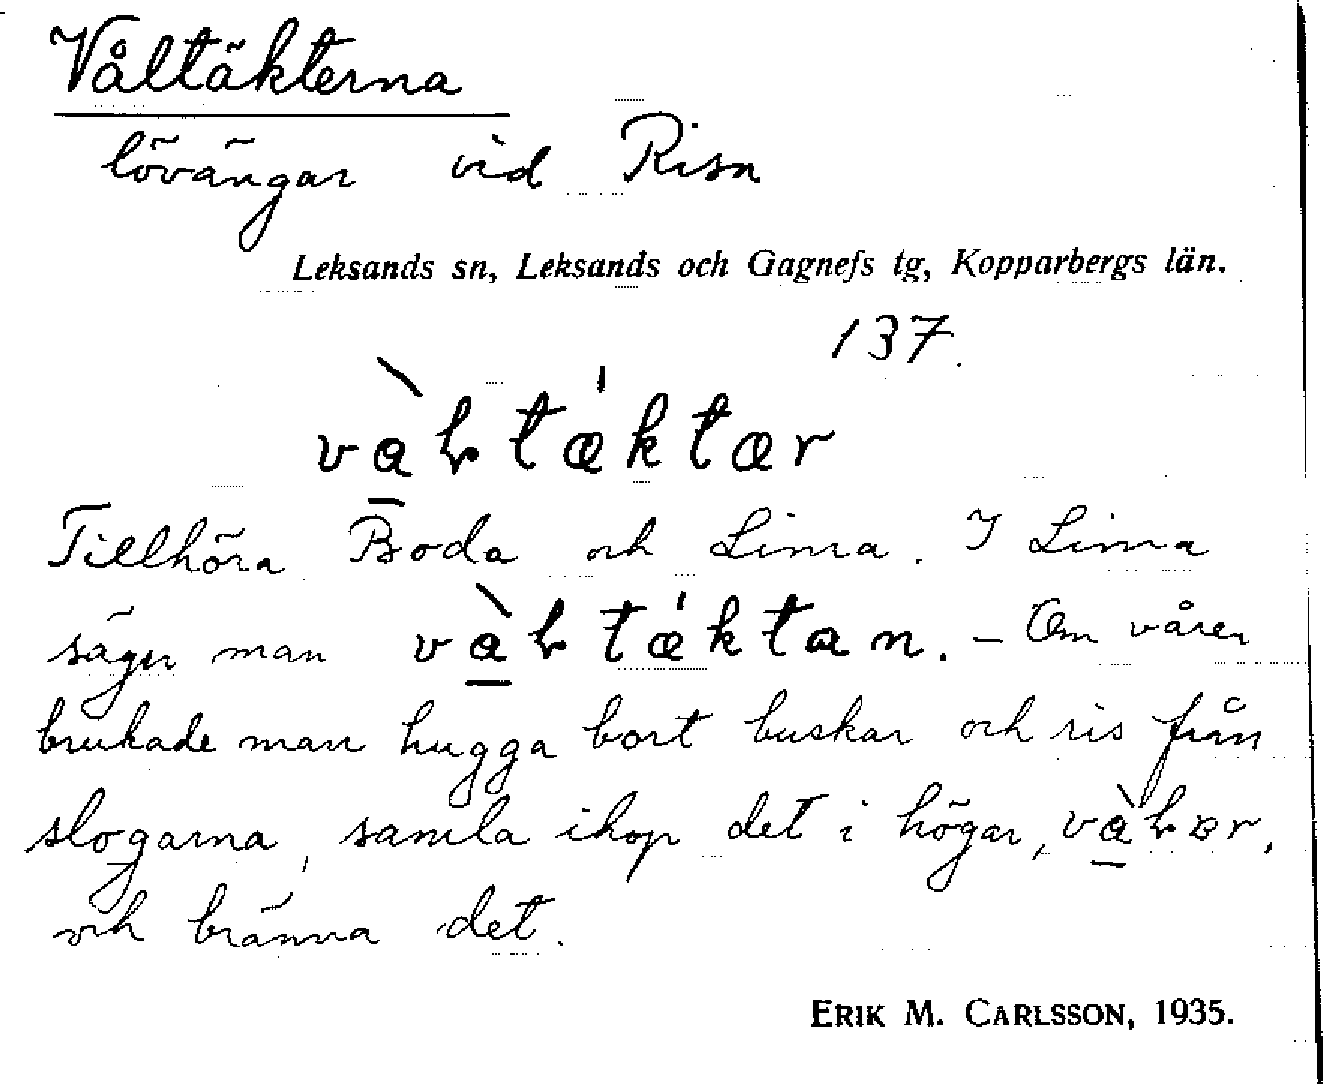 Våltäkterna
lövängar vid Risa
Leksands sn, Leksands och Gagnefs tg, Kopparbergs län.
137.
Tillhöra Boda och Limra. I Limra
säger man – Om våren
brukade man hugga bort buskar och ris från
slogarna, samla ihop det i högar,
och bränna det.
ERIK M. CARLSSON, 1935.